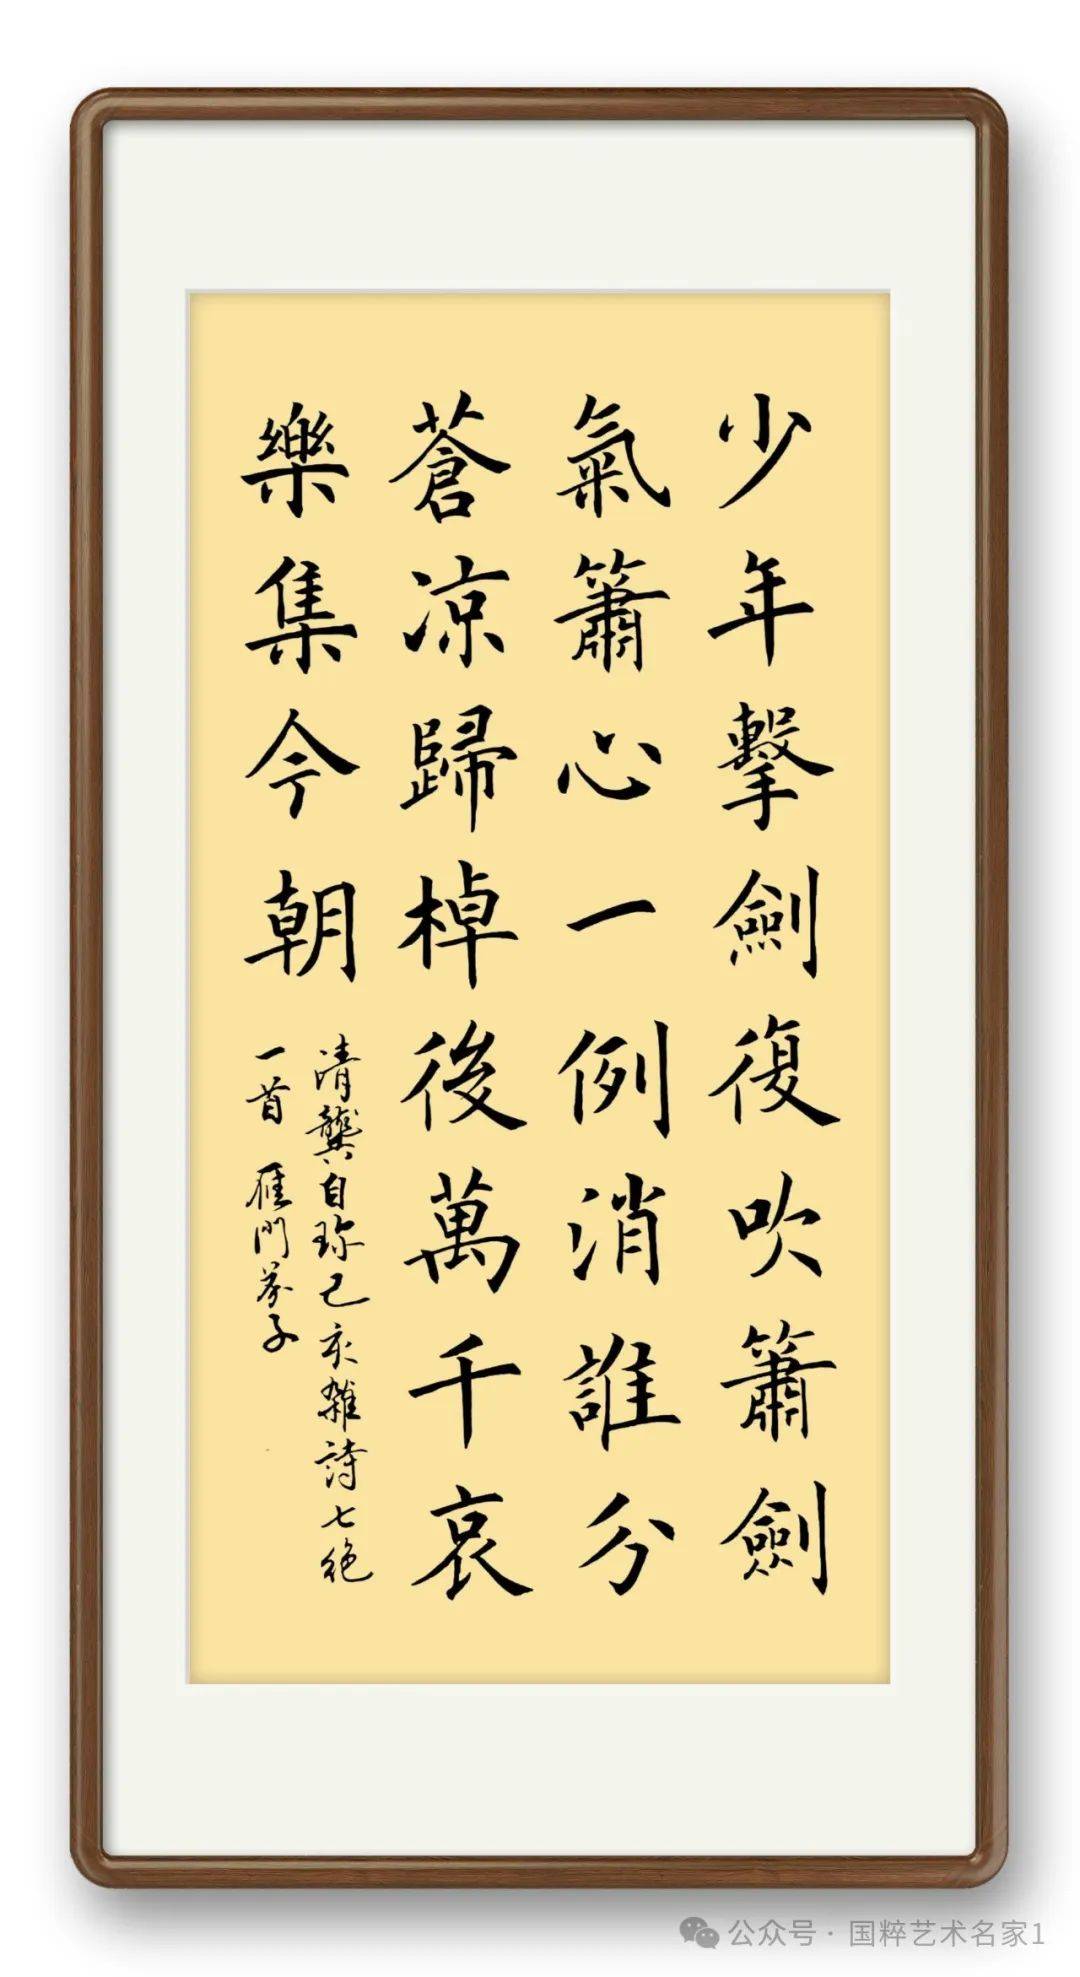 少年擊劍復吹簫劍
氣簫心一例消誰分
蒼凉歸棹後萬千哀
樂集今朝
清龔自珍己亥雜詩七絶
一首 雁門芬子
公众号·国粹艺术名家1